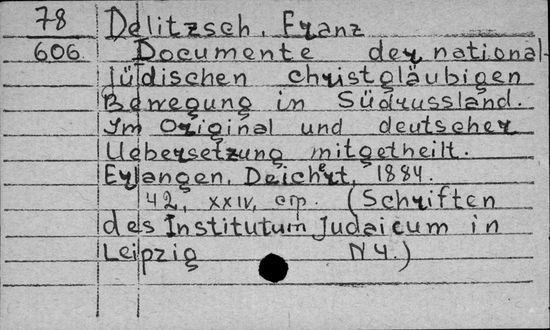 78 Delitzsch, Franz
606 Documente der national-
jüdischen christgläubigen
Bewegung in Südrussland.
Im Original und deutscher
Uebersetzung mitgetheilt.
Erlangen, Deichert, 1884.
42, XXIV, cтр. (Schriften
des Institutum Judaicum in
Leipzig N4.)